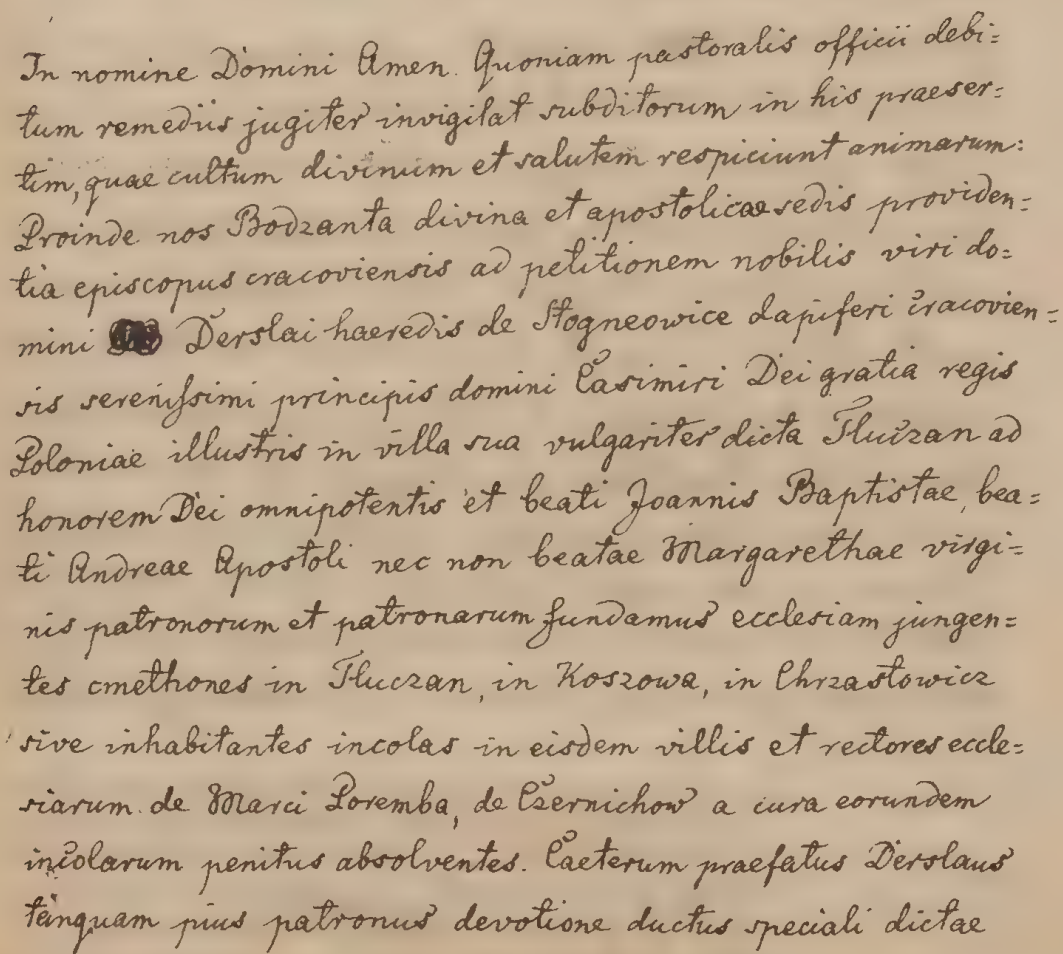 In nomine Domini Amen. Quoniam pastoralis officii debi=
tum remediis jugiter invigilat subditorum in his praeser=
tim, quae cultum divinum et salutem respiciunt animarum:
Proinde nos Bodzanta divina et apostolicae sedis providen=
tia episcopus cracoviensis ad petitionem nobilis viri do=
mini Derslai haeredis de Stogneowice dapiferi cracovien=
sis serenissimi principis domini Casimiri Dei gratia regis
Poloniae illustris in villa sua vulgariter dicta Tłuczan ad
honorem Dei omnipotentis et beati Joannis Baptistae, bea=
ti Andreae Apostoli nec non beatae Margarethae virgi=
nis patronorum et patronarum fundamus ecclesiam jungen=
tes cmethones in Tłuczan, in Koszowa, in Chrzastowicz
sive inhabitantes incolas in eisdem villis et rectores eccle=
siarum de Marci Poremba, de Czernichow a cura eorundem
incolarum penitus absolventes. Caeterum praefatus Derslaus
tanquam pius patronus devotione ductus speciali dictae